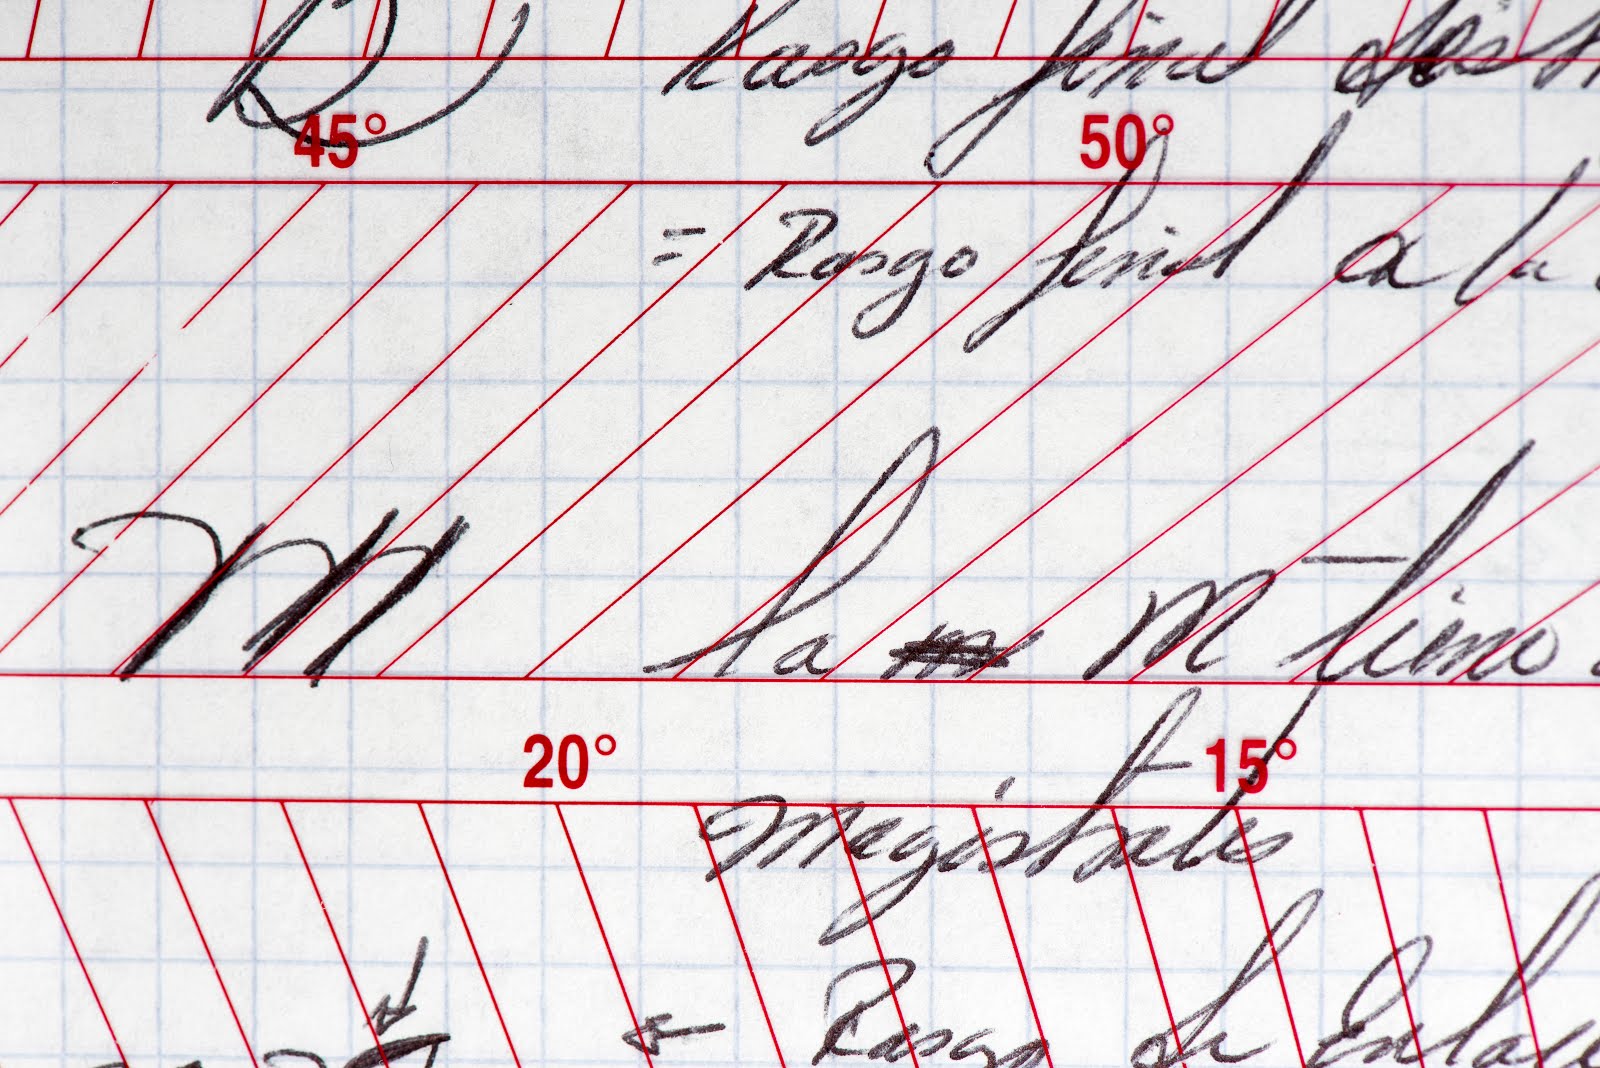 Rasgo final
45° 50°
= Rasgo final a la
M la M tiene
20° 15°
magistrales
← Rasgo de Enlace